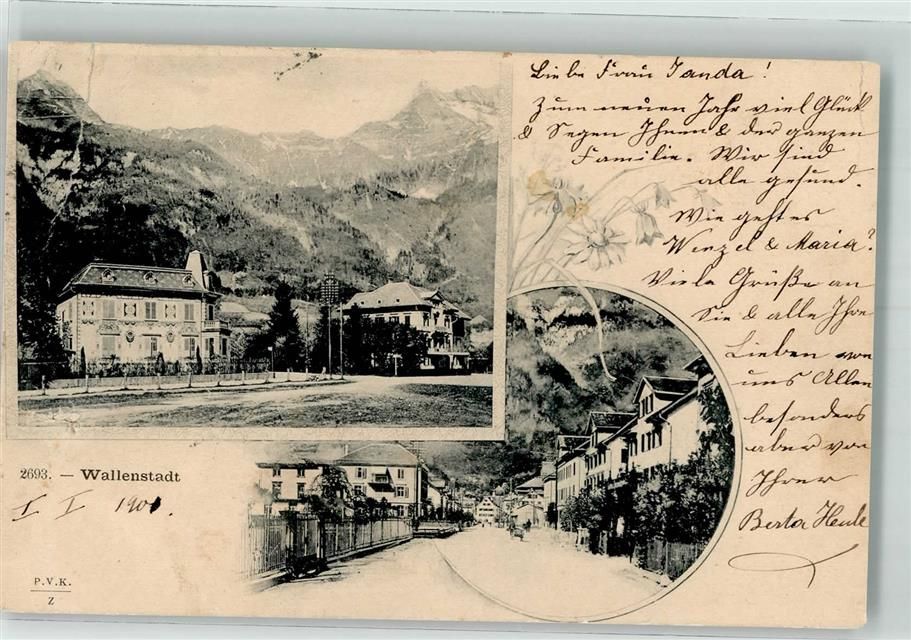 Liebe Frau Janda!
Zum neuen Jahr viel Glück
& Segen Ihnen & der ganzen
Familie. Wir sind
alle gesund.
Wie geht es
Wenzel & Maria?
Viele Grüße an
Sie & alle Ihre
Lieben von
uns Allen
besonders
aber von
Ihrer
Berta
2693. – Wallenstadt
I I 1901.
P.V.K.
Z